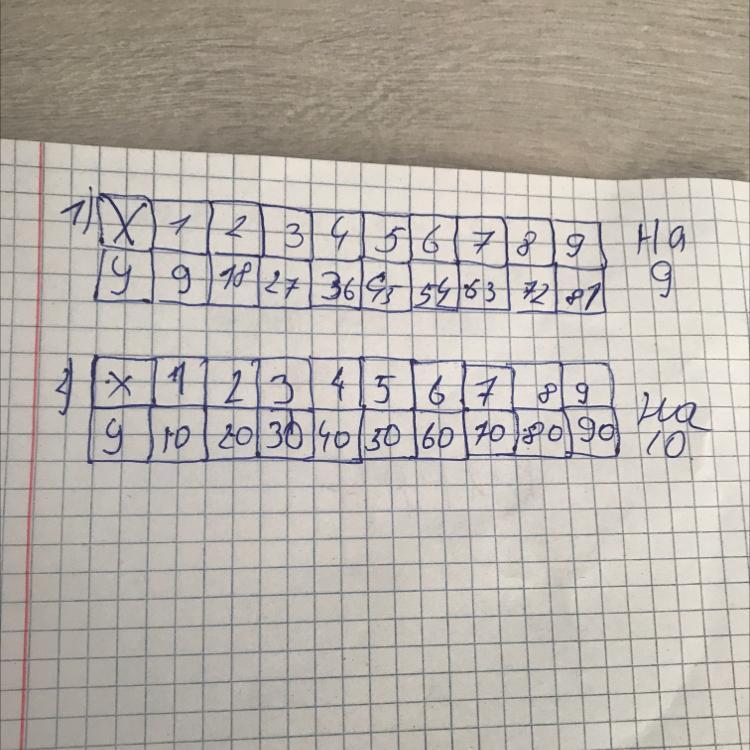 1) X 1 2 3 4 5 6 7 8 9 На
У 9 18 27 36 45 54 63 72 81 9
2) х 1 2 3 4 5 6 7 8 9 На
У 10 20 30 40 50 60 70 80 90 10